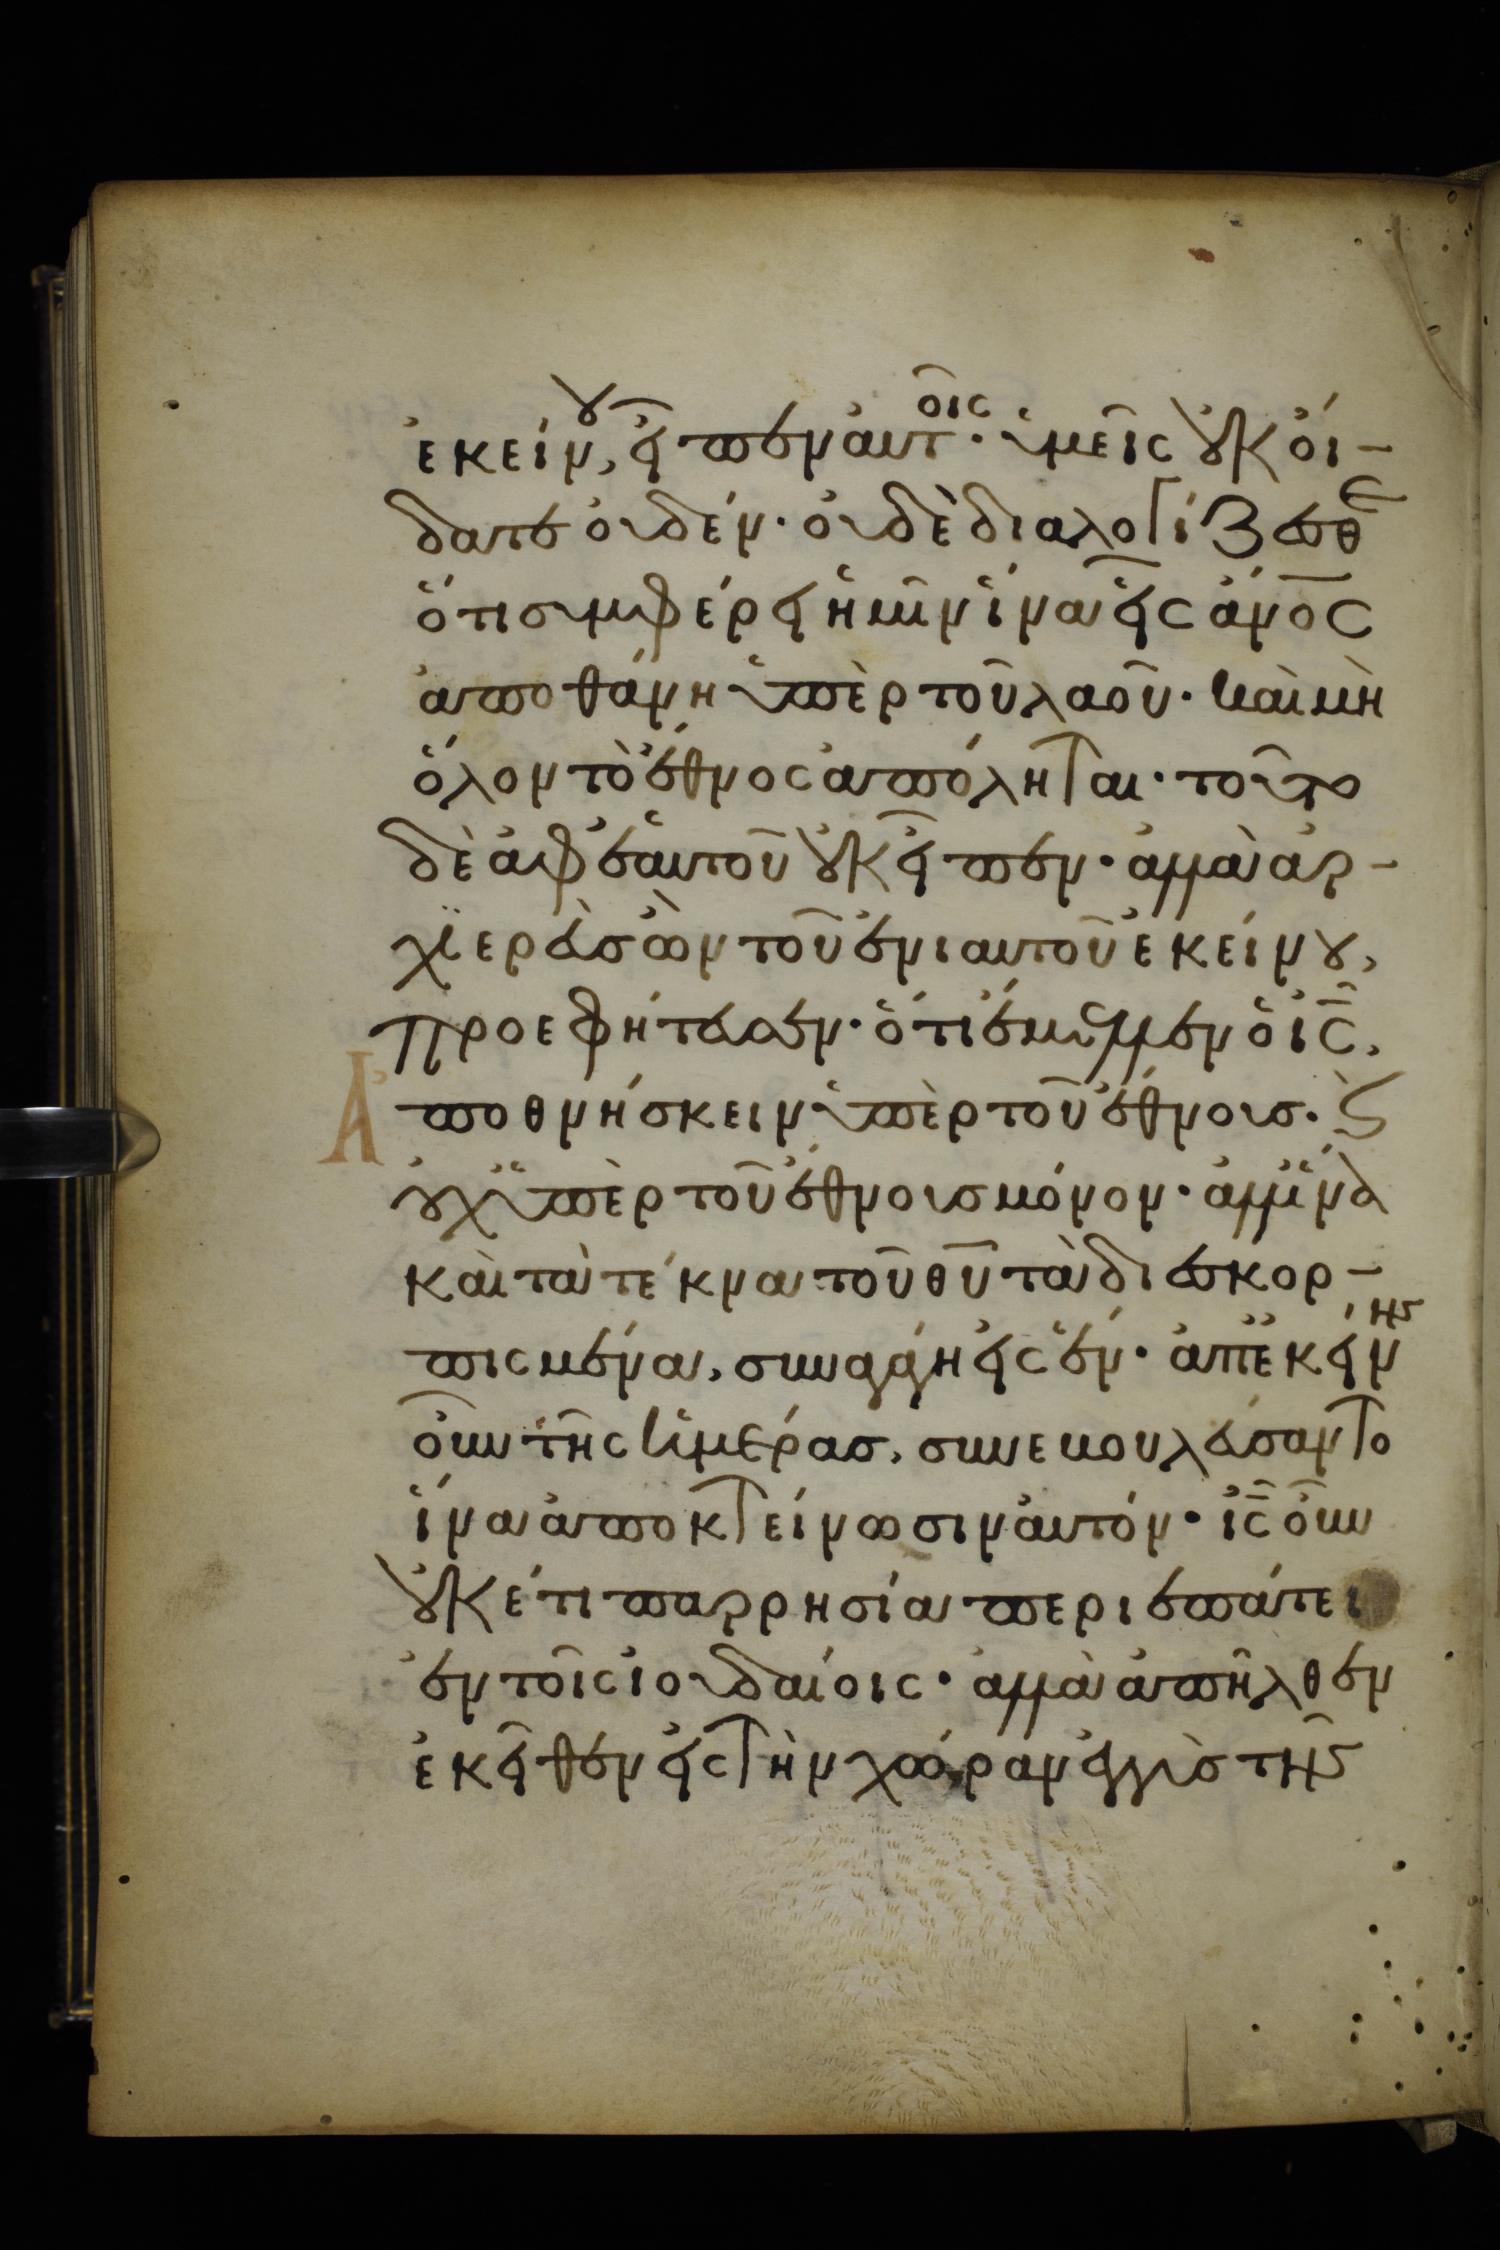 ἐκείνου, εἶπεν αὐτοῖς· ὑμεῖς οὐκ οἴ-
δατε οὐδέν· οὐδὲ διαλογίζεσθε
ὅτι συμφέρει ἡμῖν ἵνα εἷς ἄνος
ἀποθάνη ὑπὲρ τοῦ λαοῦ· καὶ μὴ
ὅλον τὸ ἔθνος ἀπόληται· τοῦτο
δὲ ἀφ ἑαυτοῦ οὐκ εἶπεν· ἀλλὰ ἀρ-
χιερεὺσ ὢν τοῦ ἐνιαυτοῦ ἐκείνου,
προεφήτευσεν· ὅτι ἔμελλεν ὁ ις,
Ἀποθνήσκειν ὑπὲρ τοῦ ἔθνουσ· ϛ
οὐχ ὑπὲρ τοῦ ἔθνουσ μόνον· ἀλλ ἵνα
καὶ τὰ τέκνα τοῦ θυ τὰ διεσκορ-
πισμένα, συναγάγη εἰς ἕν· ἀπ ἐκείνης
οὖν τῆς ἡμέρασ, συνεβουλεύσαντο
ἵνα ἀποκτείνωσιν αὐτόν· ις οὖν
οὐκέτι παρρησία περιεπάτει
ἐν τοῖς ἰουδαίοις· ἀλλὰ ἀπῆλθεν
ἐκεῖθεν εἰς τὴν χώραν ἐγγὺσ τῆς